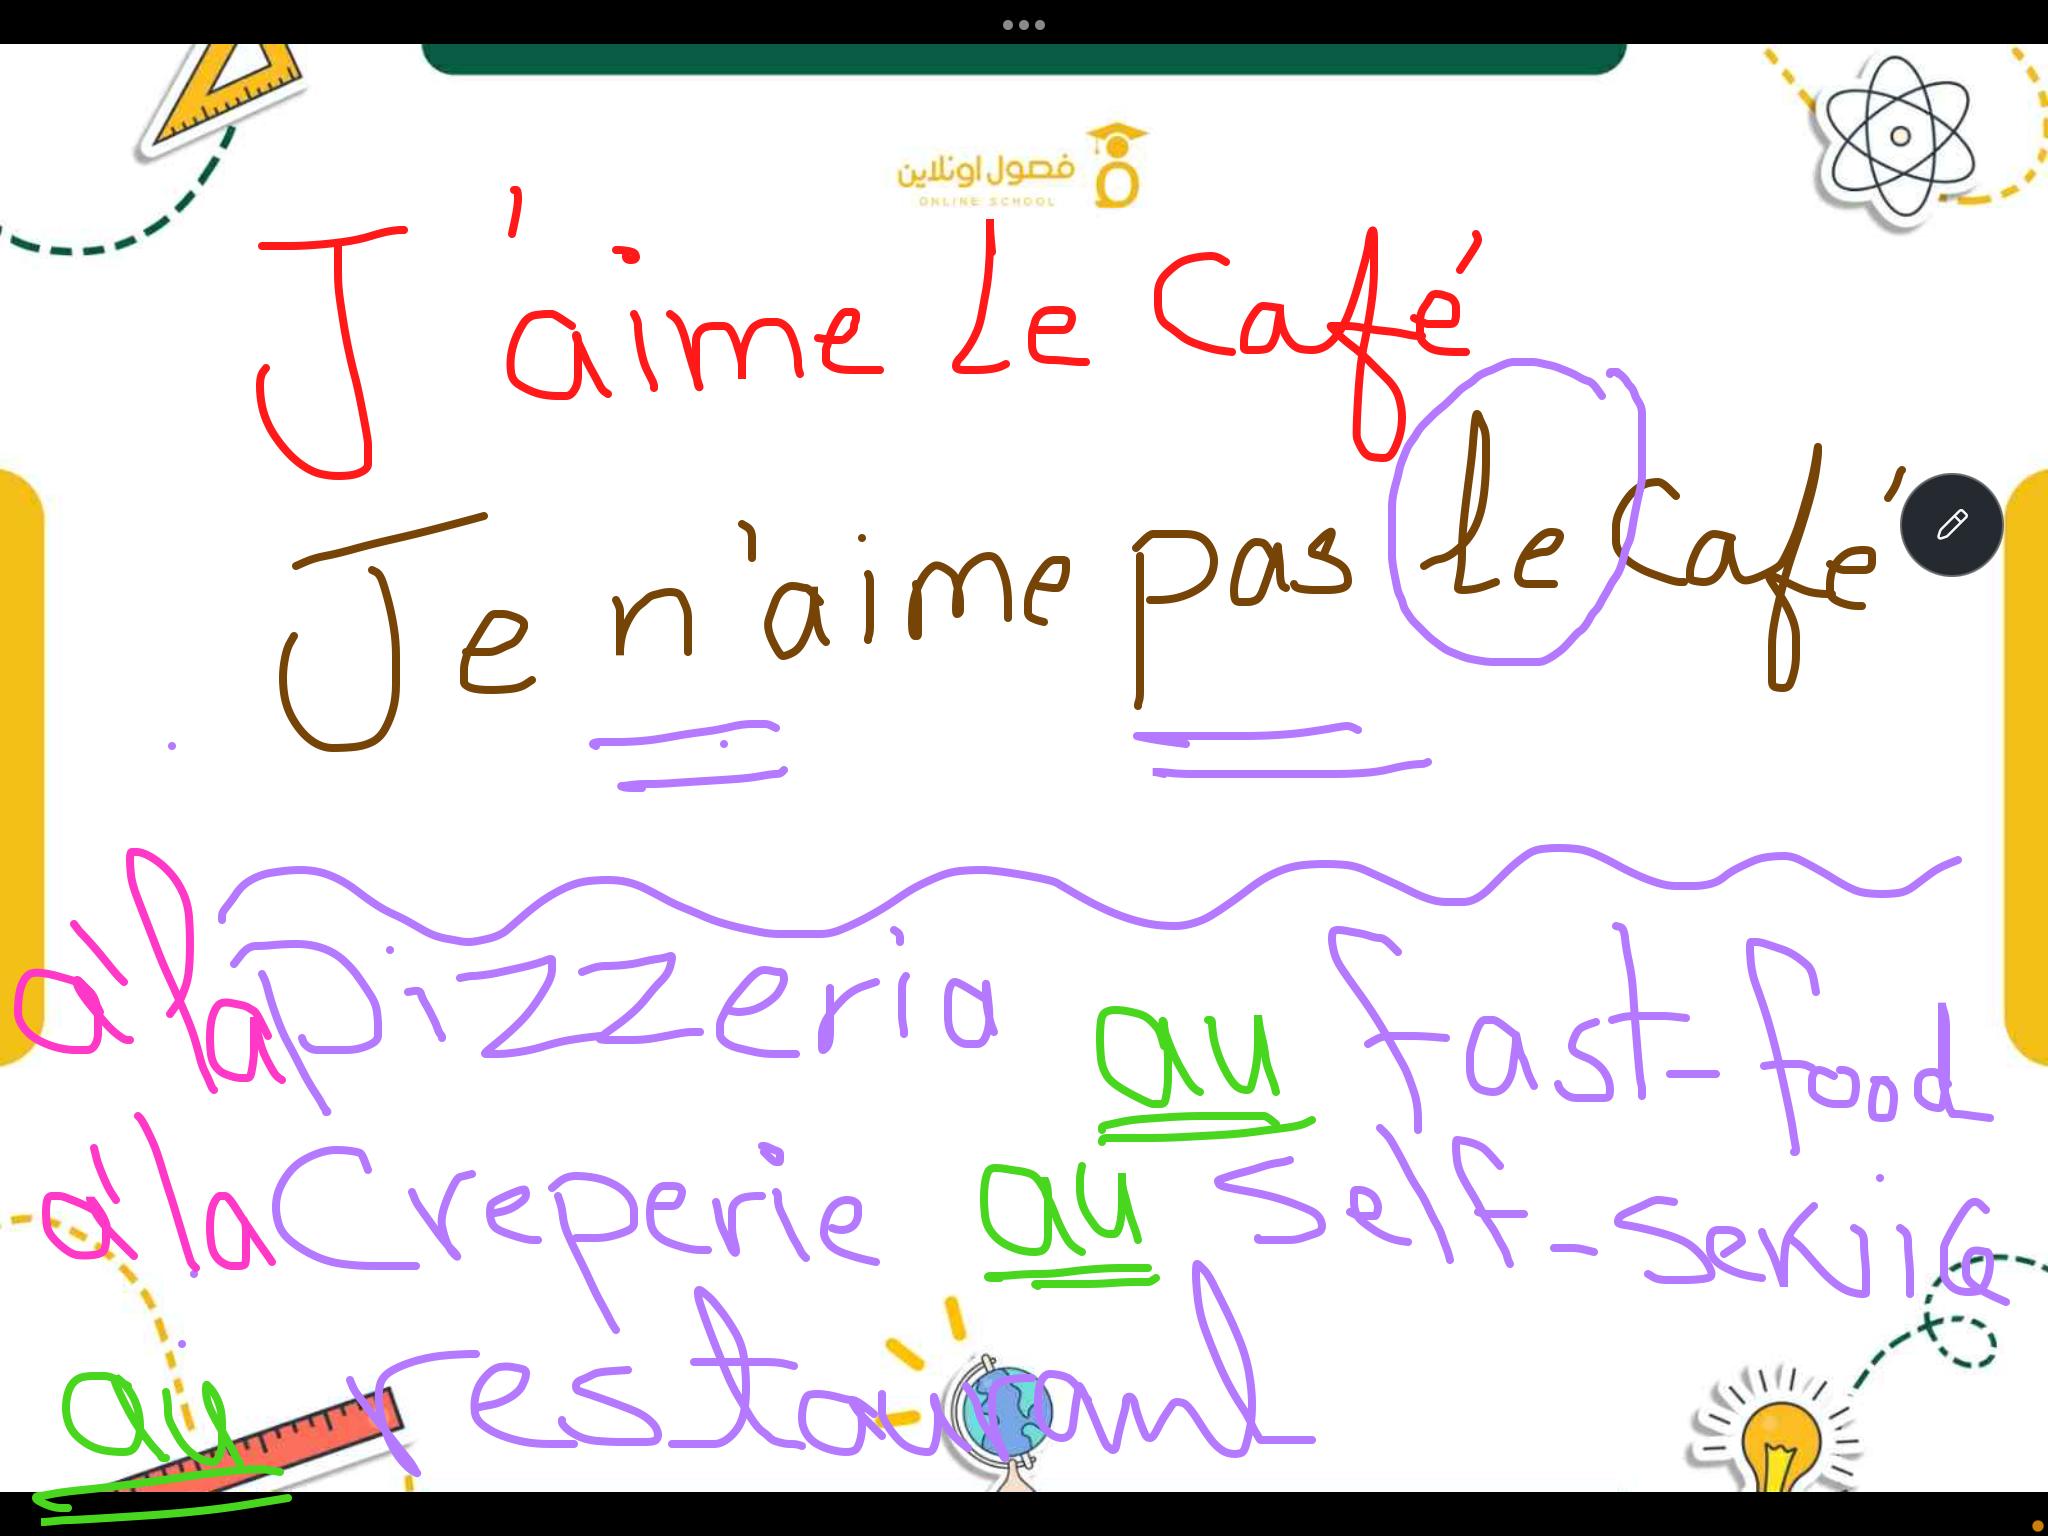 فصول اونلاين
ONLINE SCHOOL
J'aime le café
Je n'aime pas le café
à la pizzeria au fast-food
à la creperie au self-service
au restaurant